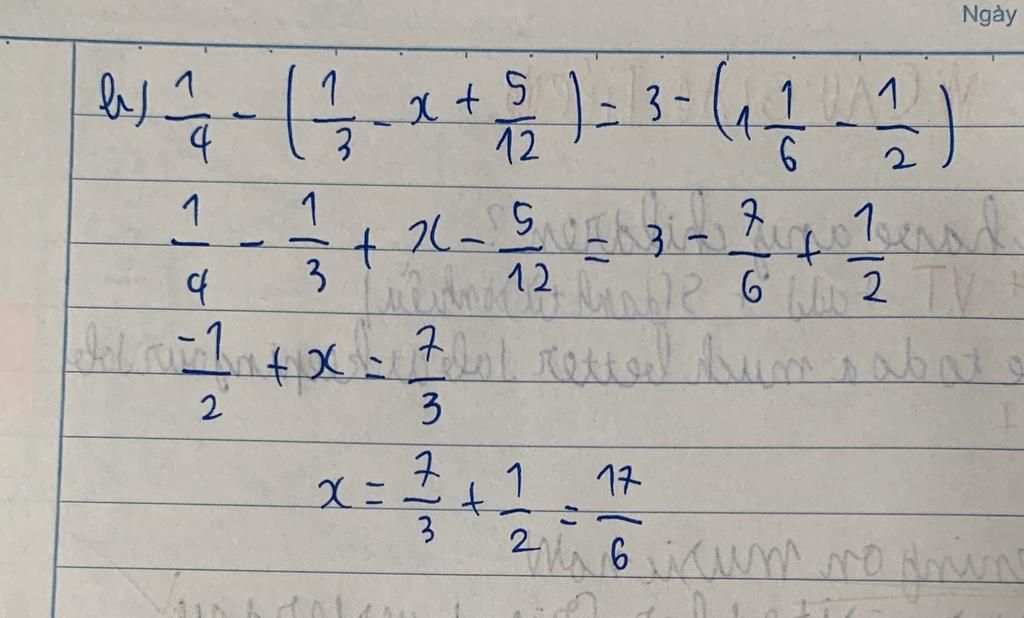 Ngày
b) 1/4 - (1/3 - x + 5/12) = 3 - (1 1/6 - 1/2)
1/4 - 1/3 + x - 5/12 = 3 - 7/6 + 1/2
-1/2 + x = 7/3
x = 7/3 + 1/2 = 17/6